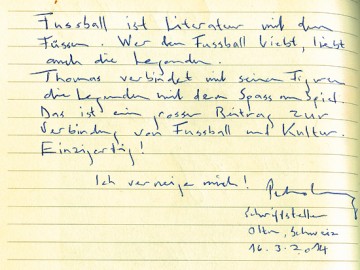 Fussball ist Literatur mit den
Füssen. Wer den Fussball liebt, liebt
auch die Legenden.
Thomas verbindet mit seinen Figuren
die Legenden mit dem Spass am Spiel.
Das ist ein grosser Beitrag zur
Verbindung von Fussball und Kultur.
Einzigartig!
Ich verneige mich!
Schriftsteller
Olten, Schweiz
16.3.2014